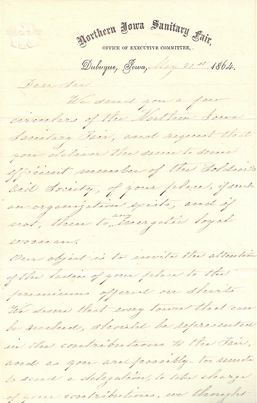 Northern Iowa Sanitary Fair,
OFFICE OF EXECUTIVE COMMITTEE,
Dubuque, Iowa, May 21st 1864.
Dear Sir
We send you a few
circulars of the Northern Iowa
Sanitary Fair, and request that
you deliver the same to some
efficient member of the Soldier's
Aid Society, of your place, if such
an organization exists, and if
not, then to any energetic loyal
woman.
Our object is to invite the attention
of the ladies of your place to the
premiums offered on
We desire that every town that can
be reached, should be represented
in the contributions to the Fair,
and as you are possibly to
to send a delegation, to take charge
of your contributions, we thought